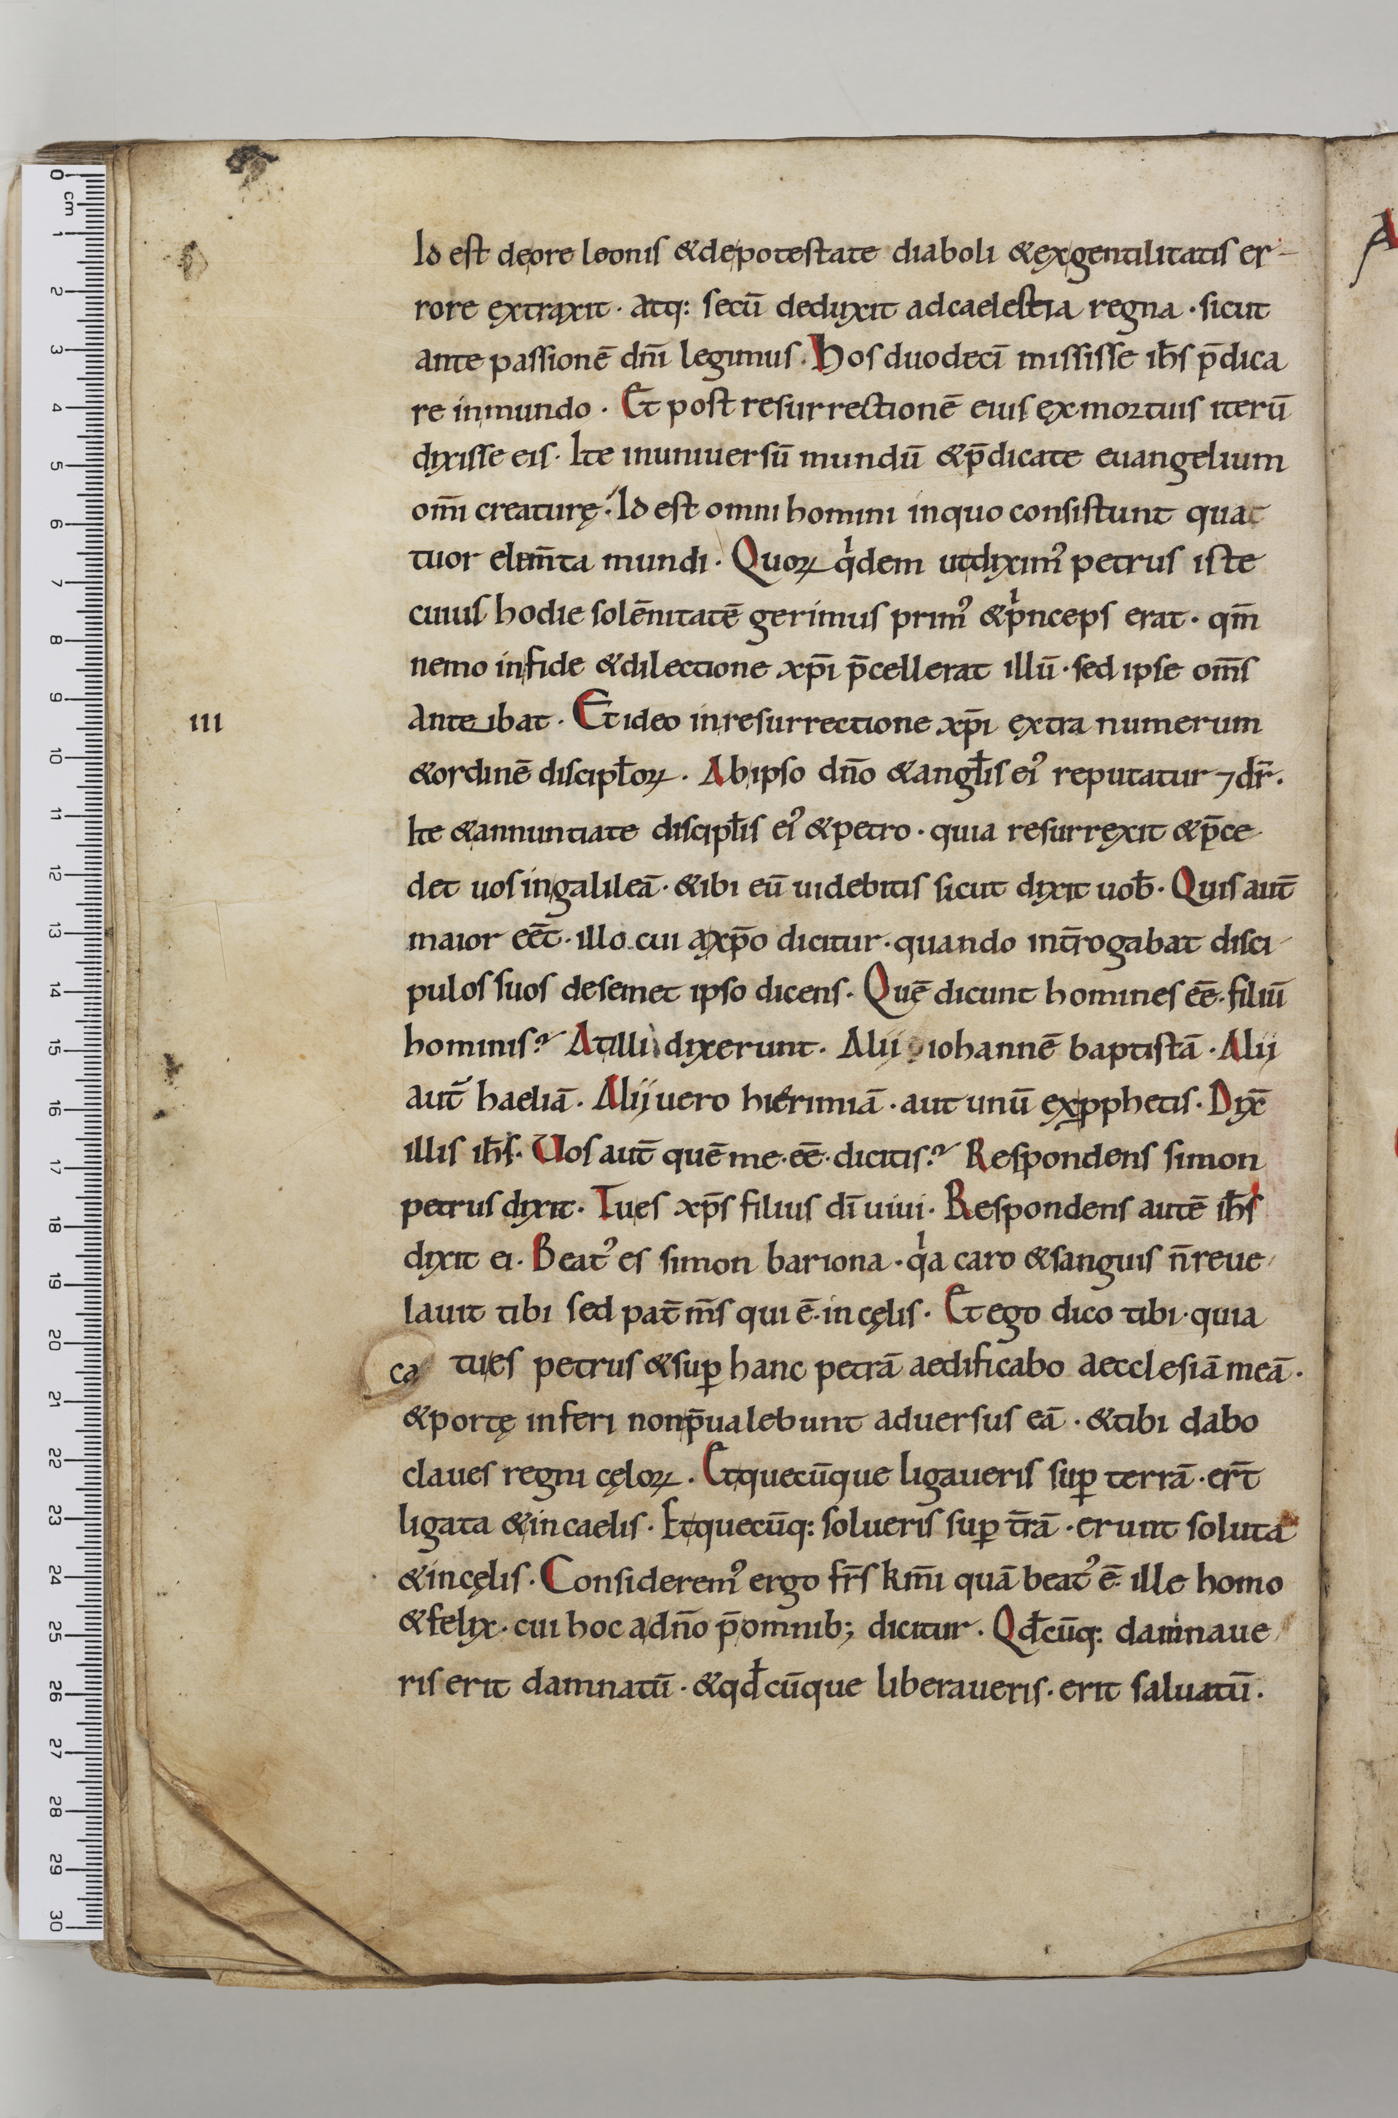 Id est deore leonis &depotestate diaboli &exgentilitatis er-
rore extraxit · atq: secū deduxit adcaelestia regna · sicut
ante passionē dn̄i legimus. Hos duodecī mississe ih̄s p̄dica
re inmundo · Et post resurrectionē eius ex mortuis iterū
dixisse eis · Ite inuniuersū mundū &p̄dicate euangelium
om̄i creaturę · Id est omni homini inquo consistunt quat
tuor elem̄ta mundi · Quoꝝ qͥdem utdiximꝰ petrus iste
cuius hodie solēnitatē gerimus primꝰ &pͥnceps erat · qm̄
nemo infide &dilectione xp̄i p̄cellerat illū · sed ipse om̄s
III
anteibat · Et ideo inresurrectione xp̄i extra numerum
&ordinē discipl̄oꝝ · Abipso dn̄o &angl̄is eiꝰ reputatur ⁊dr̄ ·
Ite &annuntiate discipl̄is eiꝰ &petro · quia resurrexit &p̄ce
det uos ingalileā · &ibi eū uidebitis sicut dixit uob̄ · Quis aut̄
maior eēt · illo cui axp̄o dicitur · quando int̄rogabat disci-
pulos suos desemet ipso dicens · Quē dicunt homines eē · filiū
hominis? Atilli dixerunt · Alij iohannē baptistā · Alij
aut̄ haeliā · Alij uero hierimiā · aut unū exꝓphetis · Dix̄
illis ih̄s · Uos aut̄ quē me · eē · dicitis? Respondens simon
petrus dixit · Tues xp̄s filius dī uiui · Respondens autē ih̄s
dixit ei · Beatꝰ es simon bariona · qͥa caro &sanguis n̄ reue
lauit tibi sed pat̄ m̄s qui ē · in cęlis · Et ego dico tibi · quia
ca tues petrus &suꝑ hanc petrā aedificabo aecclesiā meā ·
&portę inferi nonp̄ualebunt aduersus eā · &tibi dabo
claues regni cęloꝝ · Etquecūque ligaueris suꝑ terrā · er̄t
ligata &incaelis · Etquecūq: solueris suꝑ t̄rā · erunt soluta
&incęlis · Consideremꝰ ergo fr̄s km̄i quā beatꝰ ē · ille homo
&felix · cui hoc adn̄o p̄omnib; dicitur · Qd̄cūq: damnaue
ris erit damnatū · &qd̄cūque liberaueris · erit saluatū ·
0 cm 1 2 3 4 5 6 7 8 9 10 11 12 13 14 15 16 17 18 19 20 21 22 23 24 25 26 27 28 29 30